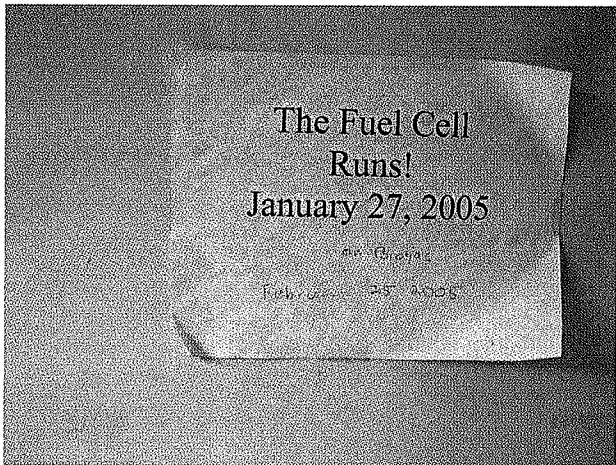 The Fuel Cell
Runs!
January 27, 2005
25 2005